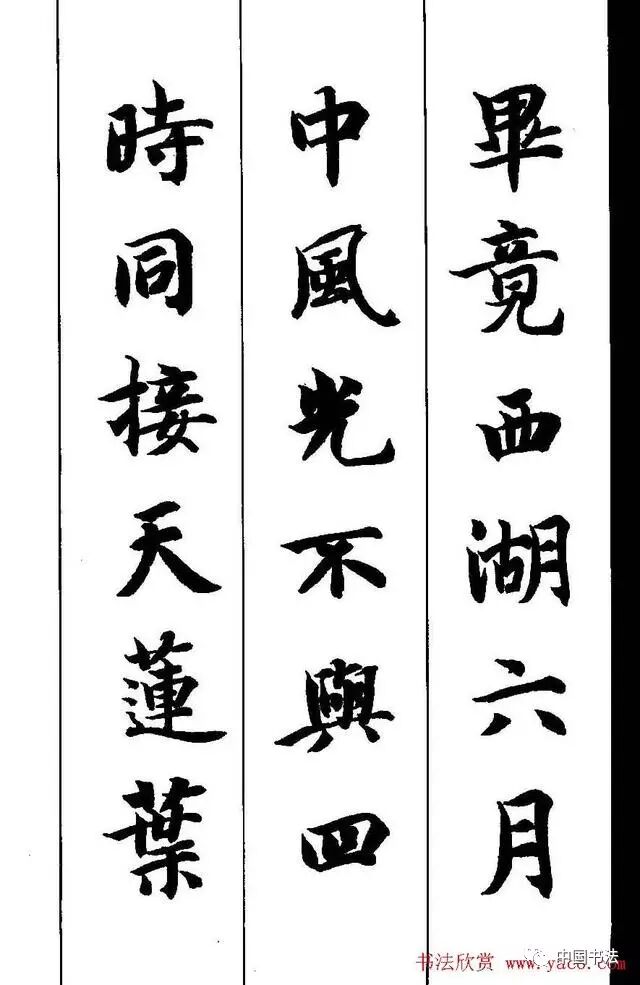 畢竟西湖六月
中風光不與四
時同接天蓮葉
中国书法
书法欣赏 www.yac8.com